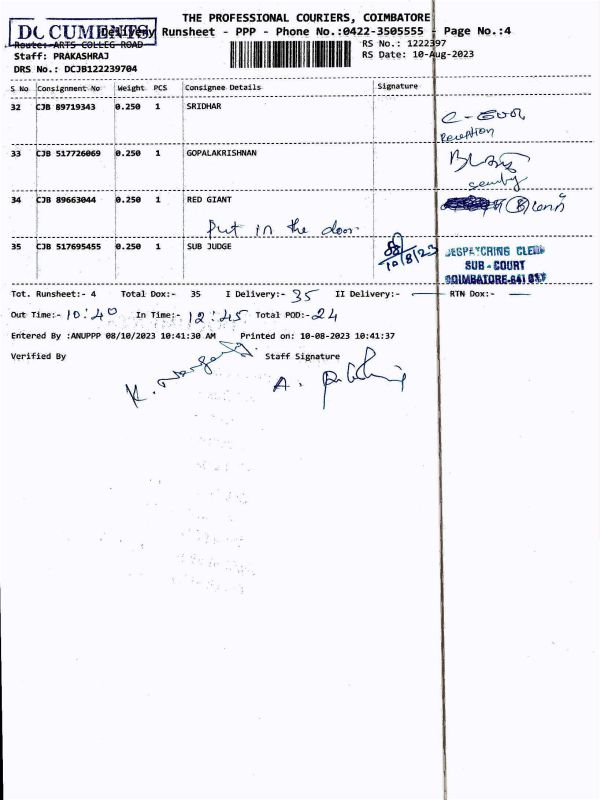 THE PROFESSIONAL COURIERS, COIMBATORE
DOCUMENTS
Delivery Runsheet - PPP - Phone No.:0422-3505555 - Page No.:4
Route:-ARTS COLLEG ROAD
RS No.: 1222397
Staff: PRAKASHRAJ
RS Date: 10-Aug-2023
DRS No.: DCJB122239704
S No Consignment No Weight PCS Consignee Details Signature
32 CJB 89719343 0.250 1 SRIDHAR
Reception
33 CJB 517726069 0.250 1 GOPALAKRISHNAN
34 CJB 89663044 0.250 1 RED GIANT
Put in the door
35 CJB 517695455 0.250 1 SUB JUDGE
10/8/23
DESPATCHING CLERK
SUB - COURT
COIMBATORE-641 018
Tot. Runsheet:- 4 Total Dox:- 35 I Delivery:- 35 II Delivery:- — RTN Dox:- —
Out Time:- 10:40 In Time:- 12:45 Total POD:- 24
Entered By :ANUPPP 08/10/2023 10:41:30 AM Printed on: 10-08-2023 10:41:37
Verified By Staff Signature